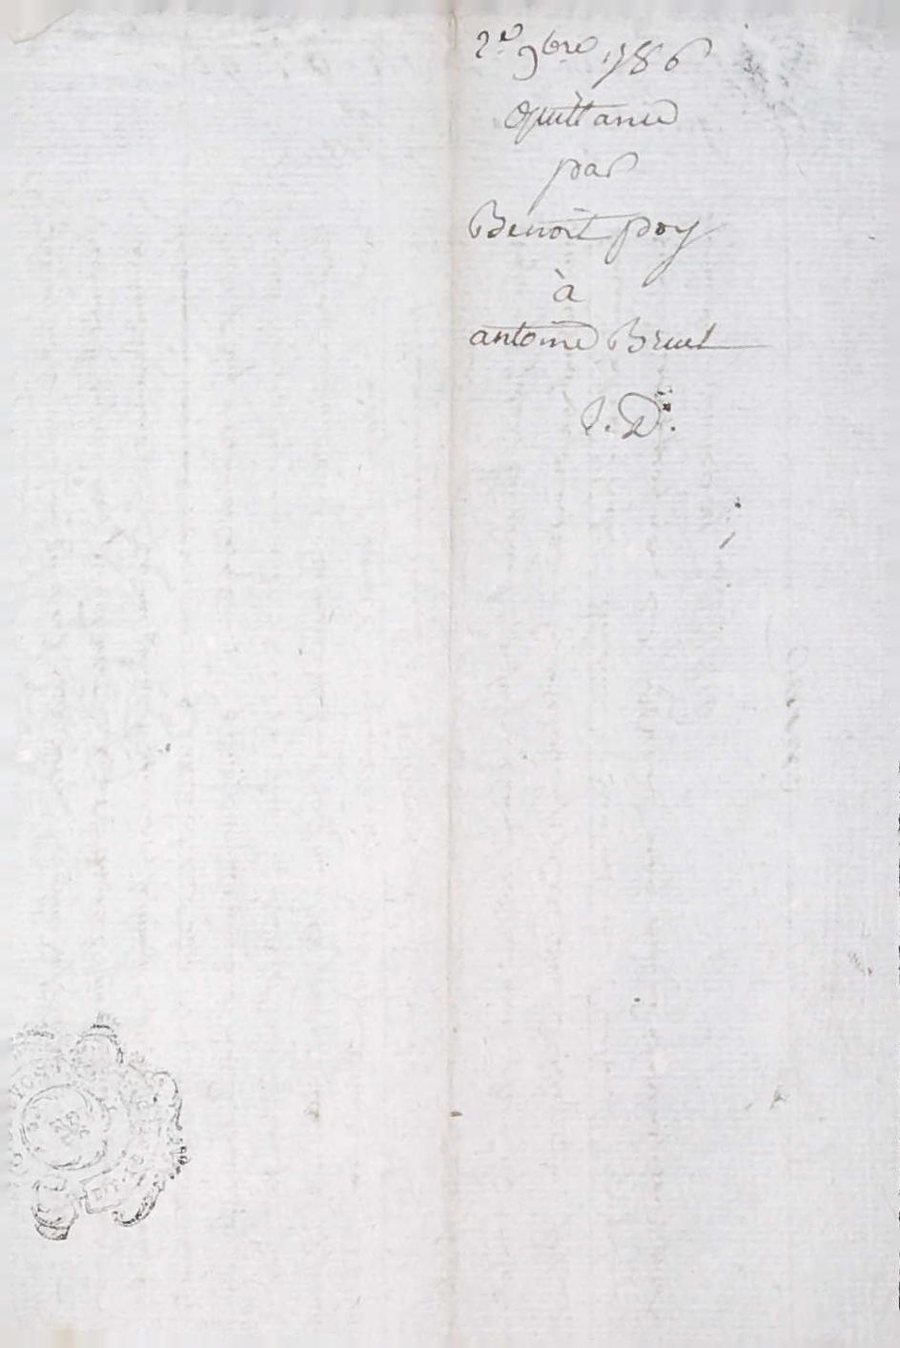 2e 9bre 1786
Quittance
par
Benoit poy
à
antoine Bruel